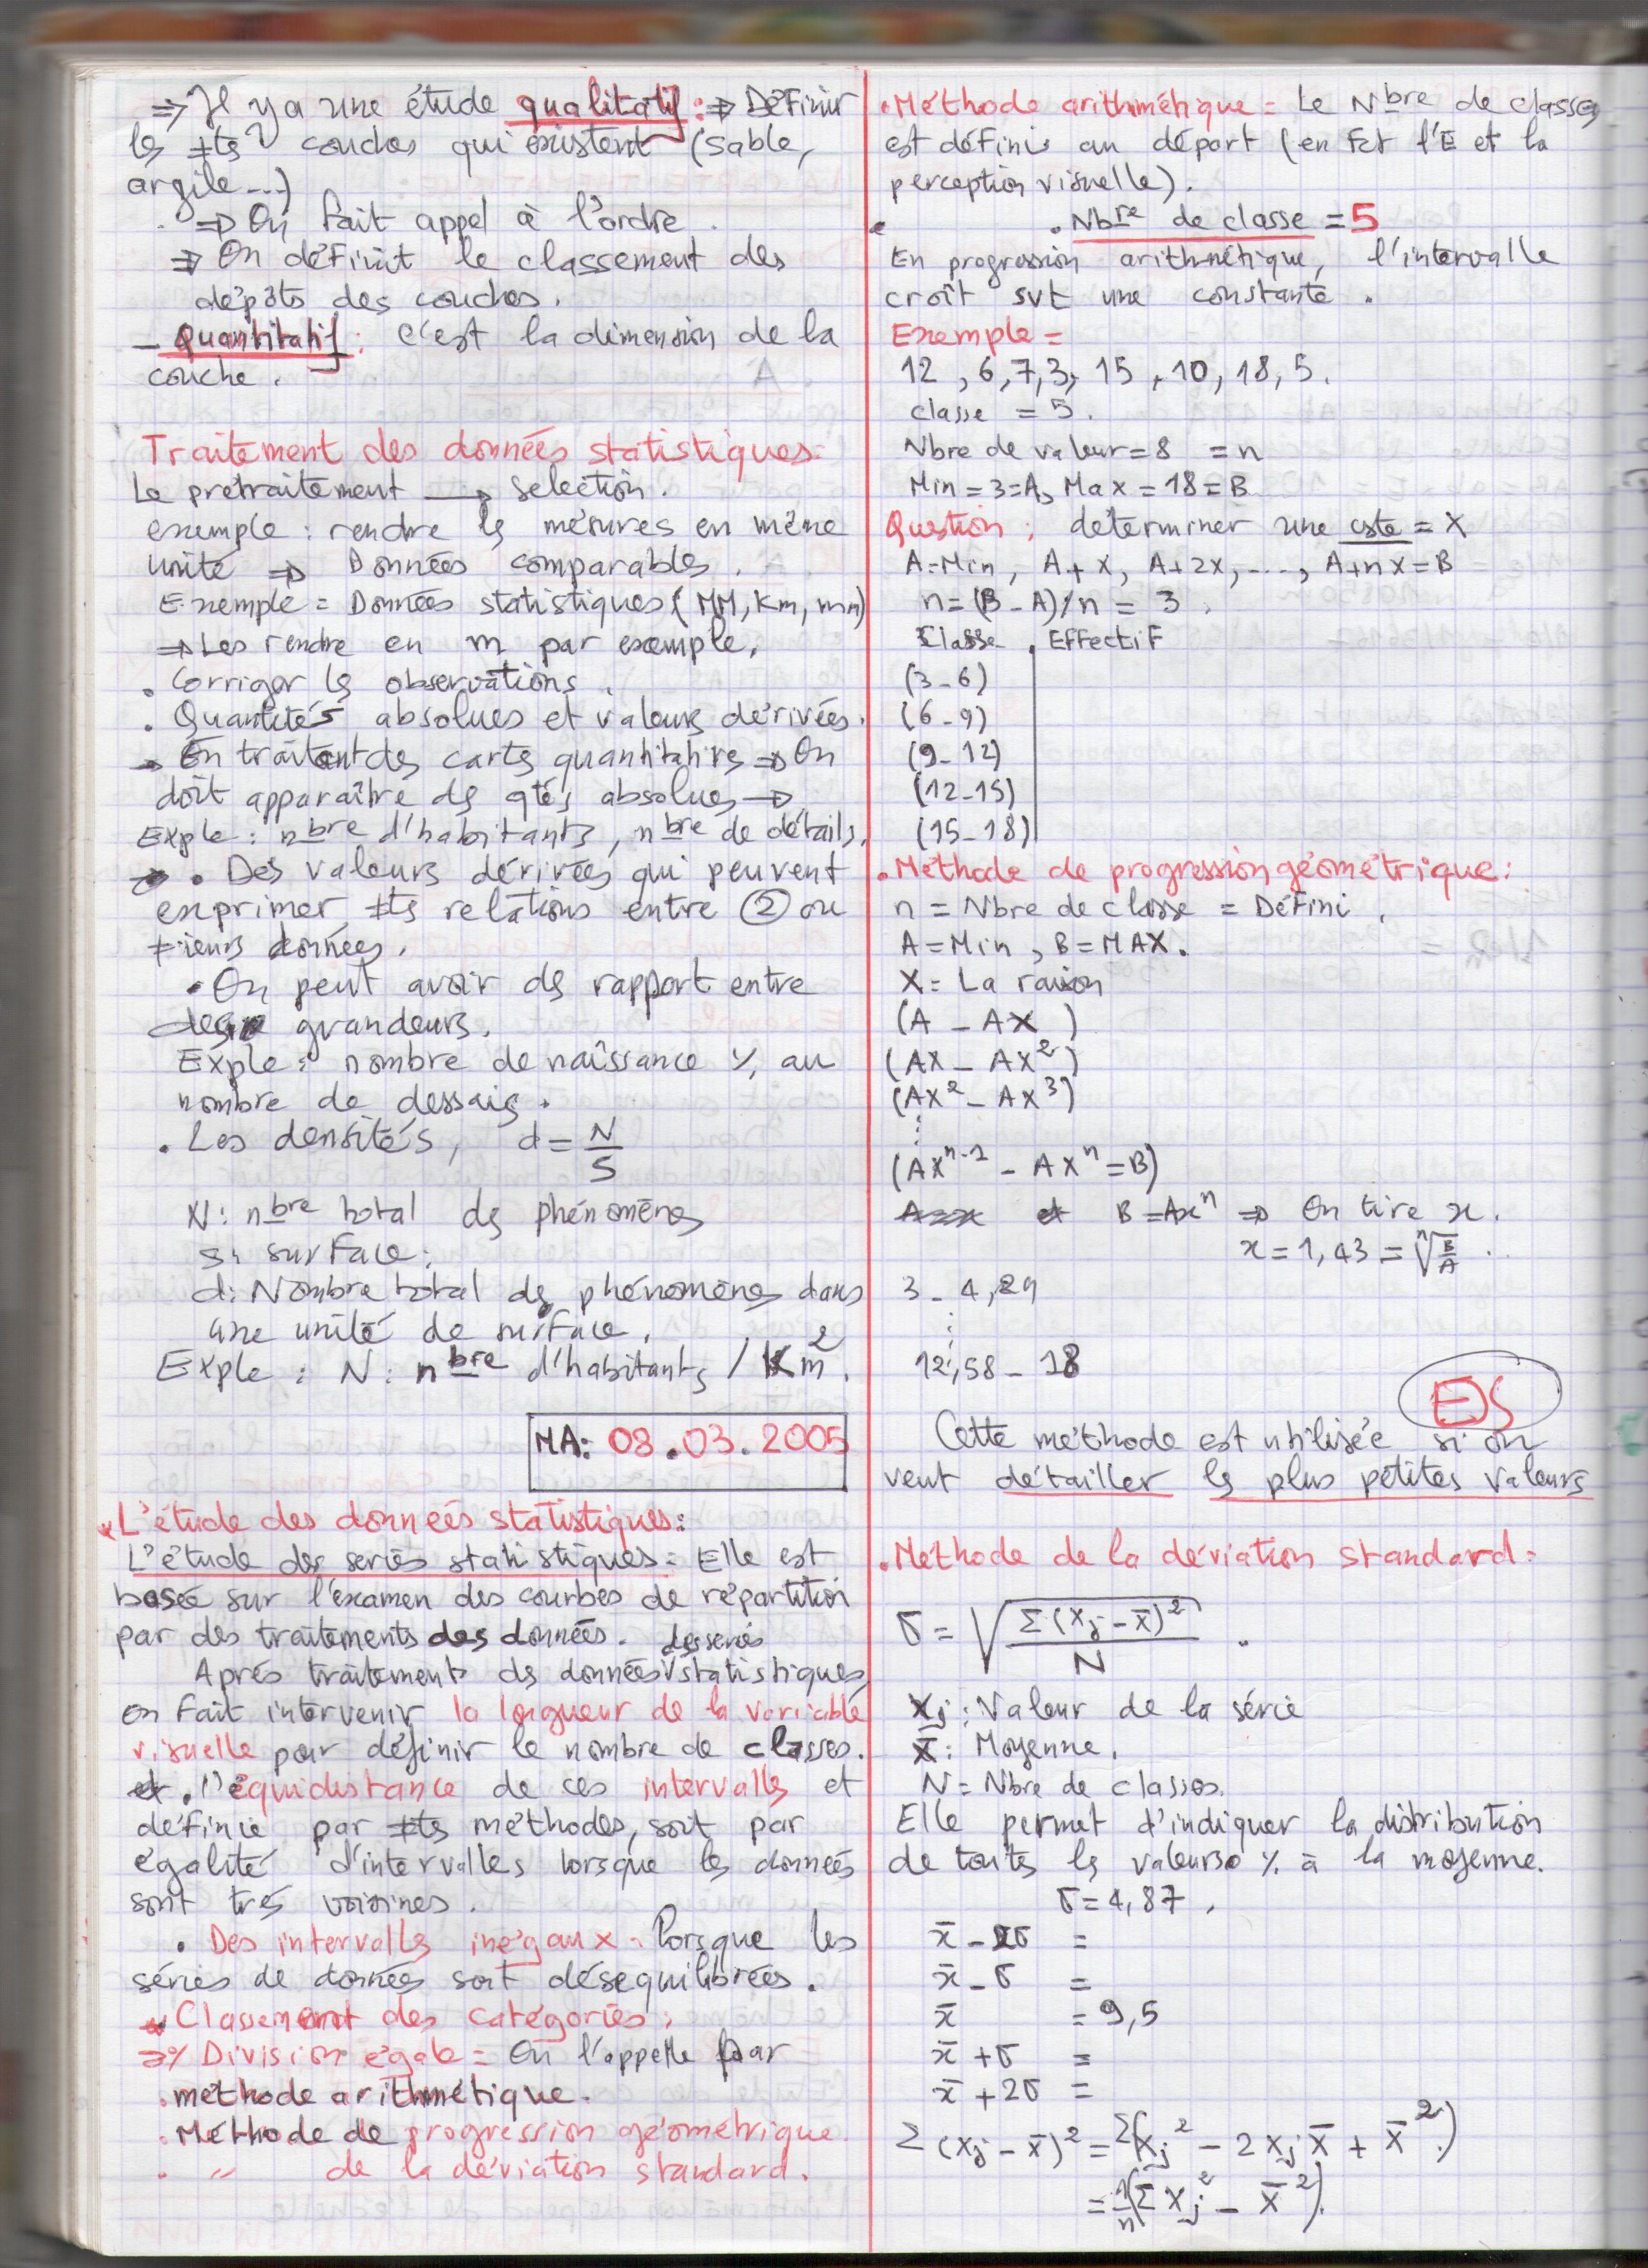 ⇒ Il y a une étude qualitatif : ⇒ Définir
les ≠ts couches qui existent (sable,
argile ...)
⇒ On fait appel à l'ordre.
⇒ On définit le classement des
dépôts des couches.
– Quantitatif : c'est la dimension de la
couche.
Traitement des données statistiques :
Le prétraitement → selection.
exemple : rendre les mésures en même
unité ⇒ Données comparables.
Exemple = Données statistiques (MM, Km, mm)
⇒ Les rendre en m par exemple.
. Corriger les observations.
. Quantités absolues et valeurs dérivées.
→ En traitant des cartes quantitatives ⇒ On
doit apparaître des qtés absolues →
Exple : nbre d'habitants, nbre de détails.
→ . Des valeurs dérivées qui peuvent
exprimer ≠ts relations entre ② ou
≠ieurs données.
. On peut avoir des rapport entre
des grandeurs.
Exple : nombre de naîssance %, au
nombre de dessais.
. Les densités, d = N/S
N : nbre total des phénomènes
S : surface.
d : Nombre total des phénomènes dans
une unité de surface.
Exple : N : nbre d'habitants / Km²
MA : 08.03.2005
* L'étude des données statistiques :
L'étude des series statistiques : Elle est
basée sur l'examen des courbes de répartition
par des traitements des données.
Aprés traitement des données des series statistiques
on fait intervenir la longueur de la variable
visuelle pour définir le nombre de classes.
et . l'équidistance de ces intervalles et
définie par ≠ts méthodes, soit par
égalité d'intervalles lorsque les données
sont très voisines.
. Des intervalles inégaux : Lorsque les
séries de données sont désequilibrées.
→ Classement des catégories :
⇒ Division égale = On l'appelle par
. méthode arithmétique.
. Méthode de progression géométrique.
. " de la déviation standard.
. Méthode arithmétique = Le Nbre de classes
est définis au départ (en Fct l'E et la
perception visuelle).
. Nbre de classe = 5
En progression arithmétique, l'intervalle
croît svt une constante.
Exemple =
12, 6, 7, 3, 15, 10, 18, 5.
classe = 5.
Nbre de valeur = 8 = n
Min = 3 = A, Max = 18 = B
Question : déterminer une cste = X
A = Min, A + X, A + 2X, ..., A + nX = B
n = (B - A)/n = 3.
Classe Effectif
(3 - 6)
(6 - 9)
(9 - 12)
(12 - 15)
(15 - 18)
. Méthode de progression géométrique :
n = Nbre de classe = Défini.
A = Min, B = MAX.
X = La raison
(A - AX)
(AX - AX²)
(AX² - AX³)
⋮
(AXⁿ⁻¹ - AXⁿ = B)
et B = Axⁿ ⇒ On tire x.
x = 1,43 = ⁿ√(B/A).
3 - 4,29
⋮
12,58 - 18
ES
Cette méthode est utilisée si on
veut détailler les plus petites valeurs
. Méthode de la déviation standard :
σ = √(Σ(Xj - x̄)²/N).
Xj : Valeur de la série
x̄ : Moyenne.
N = Nbre de classes.
Elle permet d'indiquer la distribution
de toutes les valeurs % à la moyenne.
σ = 4,87.
x̄ - 2σ =
x̄ - σ =
x̄ = 9,5
x̄ + σ =
x̄ + 2σ =
Σ(xj - x̄)² = Σ(xj² - 2xj x̄ + x̄²)
= 1/n(Σ xj² - x̄²).